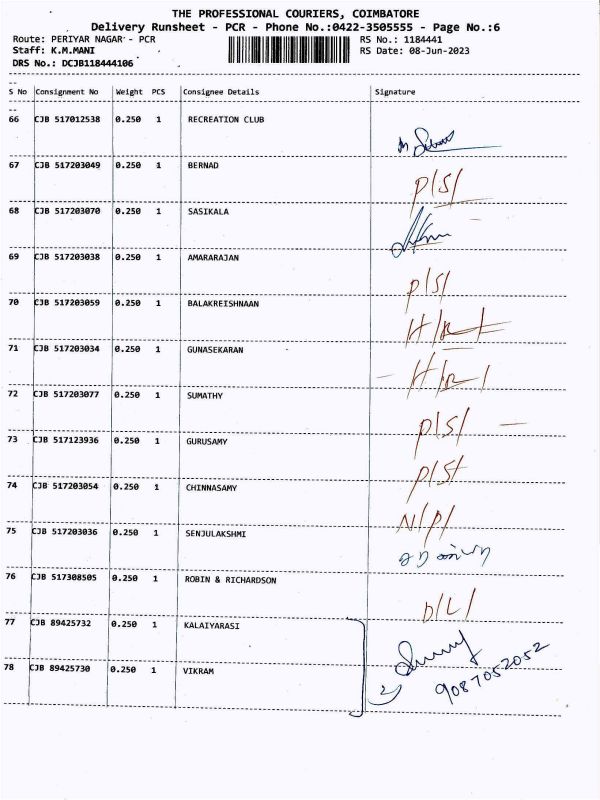 THE PROFESSIONAL COURIERS, COIMBATORE
Delivery Runsheet - PCR - Phone No.:0422-3505555 - Page No.:6
Route: PERIYAR NAGAR - PCR RS No.: 1184441
Staff: K.M.MANI RS Date: 08-Jun-2023
DRS No.: DCJB118444106
S No Consignment No Weight PCS Consignee Details Signature
66 CJB 517012538 0.250 1 RECREATION CLUB
67 CJB 517203049 0.250 1 BERNAD P/S/
68 CJB 517203070 0.250 1 SASIKALA
69 CJB 517203038 0.250 1 AMARARAJAN P/S/
70 CJB 517203059 0.250 1 BALAKREISHNAAN
71 CJB 517203034 0.250 1 GUNASEKARAN H/R/
72 CJB 517203077 0.250 1 SUMATHY P/S/
73 CJB 517123936 0.250 1 GURUSAMY
74 CJB 517203054 0.250 1 CHINNASAMY N/P/
75 CJB 517203036 0.250 1 SENJULAKSHMI
76 CJB 517308505 0.250 1 ROBIN & RICHARDSON D/L/
77 CJB 89425732 0.250 1 KALAIYARASI
78 CJB 89425730 0.250 1 VIKRAM 9087052052